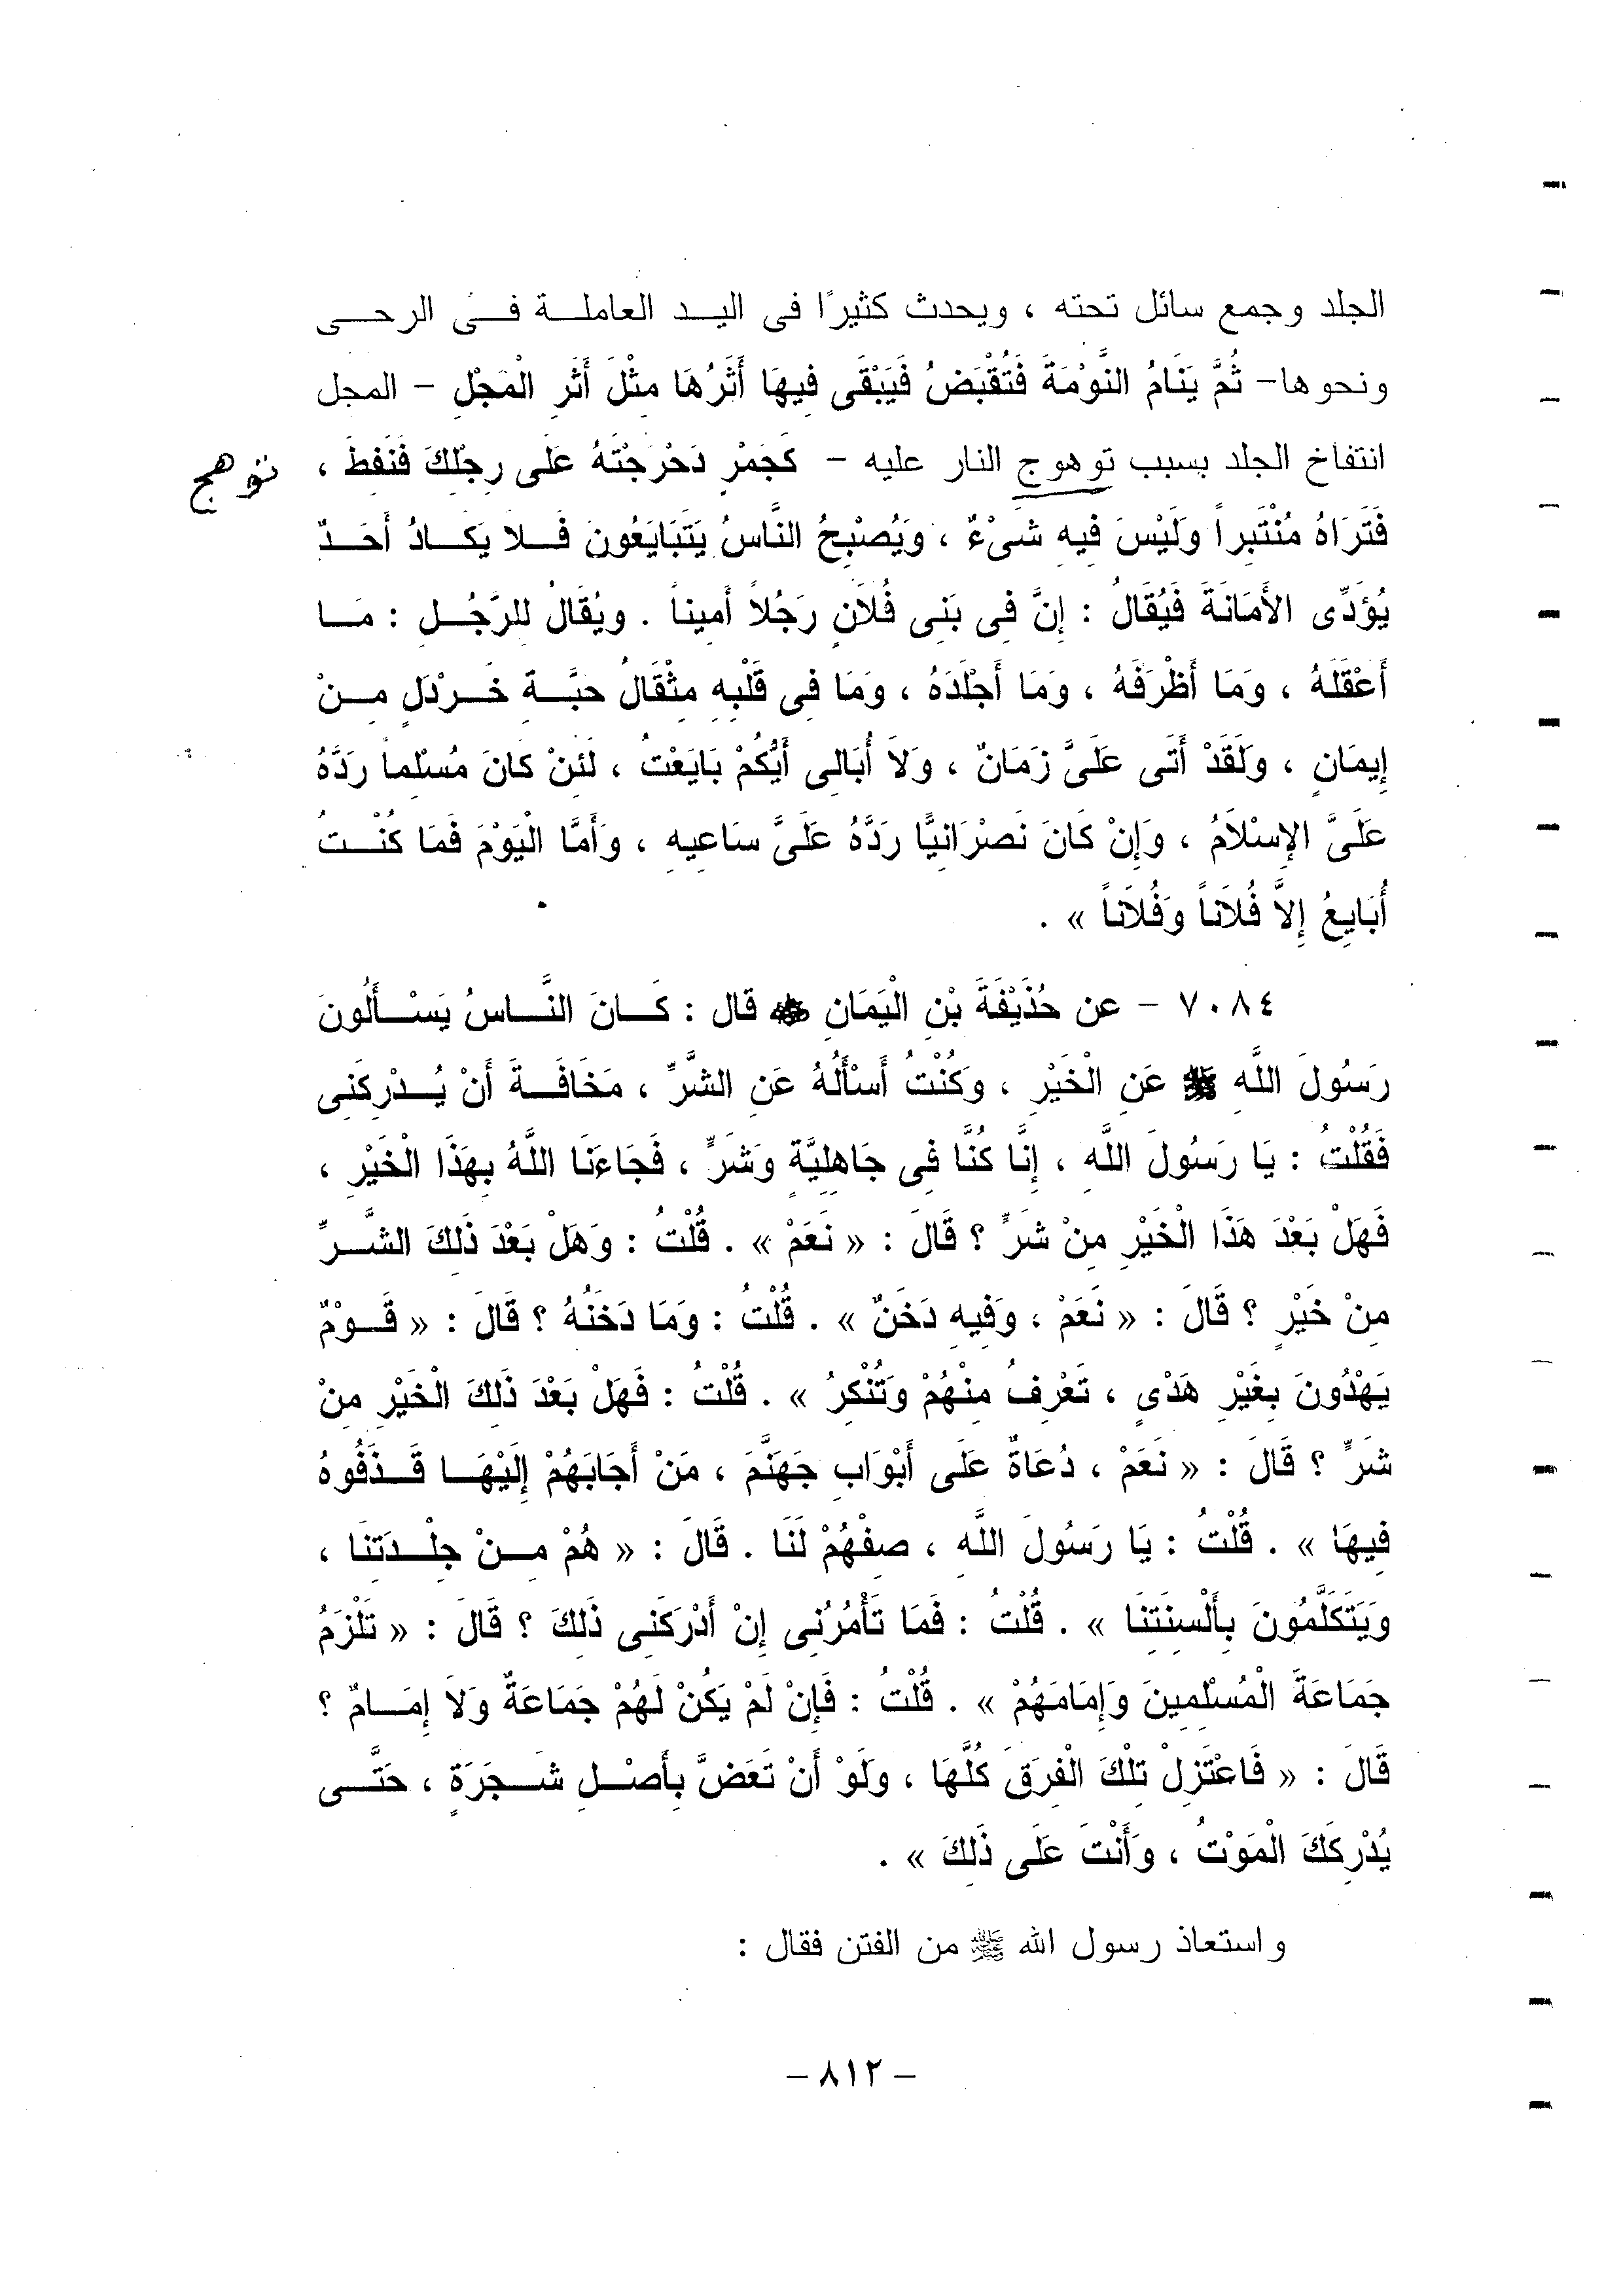 الجلد وجمع سائل تحته ، ويحدث كثيرًا فى اليـــد العاملـــة فـــى الرحـــى
ونحوها- ثُمَّ يَنَامُ النَّوْمَةَ فَتُقْبَضُ فَيَبْقَى فِيهَا أَثَرُهَا مِثْلَ أَثَرِ الْمَجْلِ – المجل
انتفاخ الجلد بسبب توهوج النار عليه – كَجَمْرٍ دَحْرَجْتَهُ عَلَى رِجْلِكَ فَنَفِطَ ،
توهج
فَتَرَاهُ مُنْتَبِراً وَلَيْسَ فِيهِ شَىْءٌ ، وَيُصْبِحُ النَّاسُ يَتَبَايَعُونَ فَـــلا يَكَـــادُ أَحَـــدٌ
يُؤَدِّى الأَمَانَةَ فَيُقَالُ : إِنَّ فِى بَنِى فُلَانٍ رَجُلاً أَمِيناً . وَيُقَالُ لِلرَّجُـــلِ : مَـــا
أَعْقَلَهُ ، وَمَا أَظْرَفَهُ ، وَمَا أَجْلَدَهُ ، وَمَا فِى قَلْبِهِ مِثْقَالُ حَبَّـــةِ خَـــرْدَلٍ مِـــنْ
إِيمَانٍ ، وَلَقَدْ أَتَى عَلَىَّ زَمَانٌ ، وَلاَ أُبَالِى أَيُّكُمْ بَايَعْتُ ، لَئِنْ كَانَ مُسْلِماً رَدَّهُ
عَلَىَّ الإِسْلَامُ ، وَإِنْ كَانَ نَصْرَانِيًّا رَدَّهُ عَلَىَّ سَاعِيهِ ، وَأَمَّا الْيَوْمَ فَمَا كُنْـــتُ
أُبَايِعُ إِلاَّ فُلَاناً وَفُلَاناً » .
٧٠٨٤ – عن حُذَيْفَةَ بْنِ الْيَمَانِ ﵁ قال : كَـــانَ النَّـــاسُ يَسْـــأَلُونَ
رَسُولَ اللَّهِ ﷺ عَنِ الْخَيْرِ ، وَكُنْتُ أَسْأَلُهُ عَنِ الشَّرِّ ، مَخَافَـــةَ أَنْ يُـــدْرِكَنِى
فَقُلْتُ : يَا رَسُولَ اللَّهِ ، إِنَّا كُنَّا فِى جَاهِلِيَّةٍ وَشَرٍّ ، فَجَاءَنَا اللَّهُ بِهَذَا الْخَيْرِ ،
فَهَلْ بَعْدَ هَذَا الْخَيْرِ مِنْ شَرٍّ ؟ قَالَ : « نَعَمْ » . قُلْتُ : وَهَلْ بَعْدَ ذَلِكَ الشَّـــرِّ
مِنْ خَيْرٍ ؟ قَالَ : « نَعَمْ ، وَفِيهِ دَخَنٌ » . قُلْتُ : وَمَا دَخَنُهُ ؟ قَالَ : « قَـــوْمٌ
يَهْدُونَ بِغَيْرِ هَدْىٍ ، تَعْرِفُ مِنْهُمْ وَتُنْكِرُ » . قُلْتُ : فَهَلْ بَعْدَ ذَلِكَ الْخَيْرِ مِنْ
شَرٍّ ؟ قَالَ : « نَعَمْ ، دُعَاةٌ عَلَى أَبْوَابِ جَهَنَّمَ ، مَنْ أَجَابَهُمْ إِلَيْهَـــا قَـــذَفُوهُ
فِيهَا » . قُلْتُ : يَا رَسُولَ اللَّهِ ، صِفْهُمْ لَنَا . قَالَ : « هُمْ مِـــنْ جِلْـــدَتِنَا ،
وَيَتَكَلَّمُونَ بِأَلْسِنَتِنَا » . قُلْتُ : فَمَا تَأْمُرُنِى إِنْ أَدْرَكَنِى ذَلِكَ ؟ قَالَ : « تَلْزَمُ
جَمَاعَةَ الْمُسْلِمِينَ وَإِمَامَهُمْ » . قُلْتُ : فَإِنْ لَمْ يَكُنْ لَهُمْ جَمَاعَةٌ وَلاَ إِمَـــامٌ ؟
قَالَ : « فَاعْتَزِلْ تِلْكَ الْفِرَقَ كُلَّهَا ، وَلَوْ أَنْ تَعَضَّ بِأَصْـــلِ شَـــجَرَةٍ ، حَتَّـــى
يُدْرِكَكَ الْمَوْتُ ، وَأَنْتَ عَلَى ذَلِكَ » .
واستعاذ رسول الله ﷺ من الفتن فقال :
– ٨١٢ –